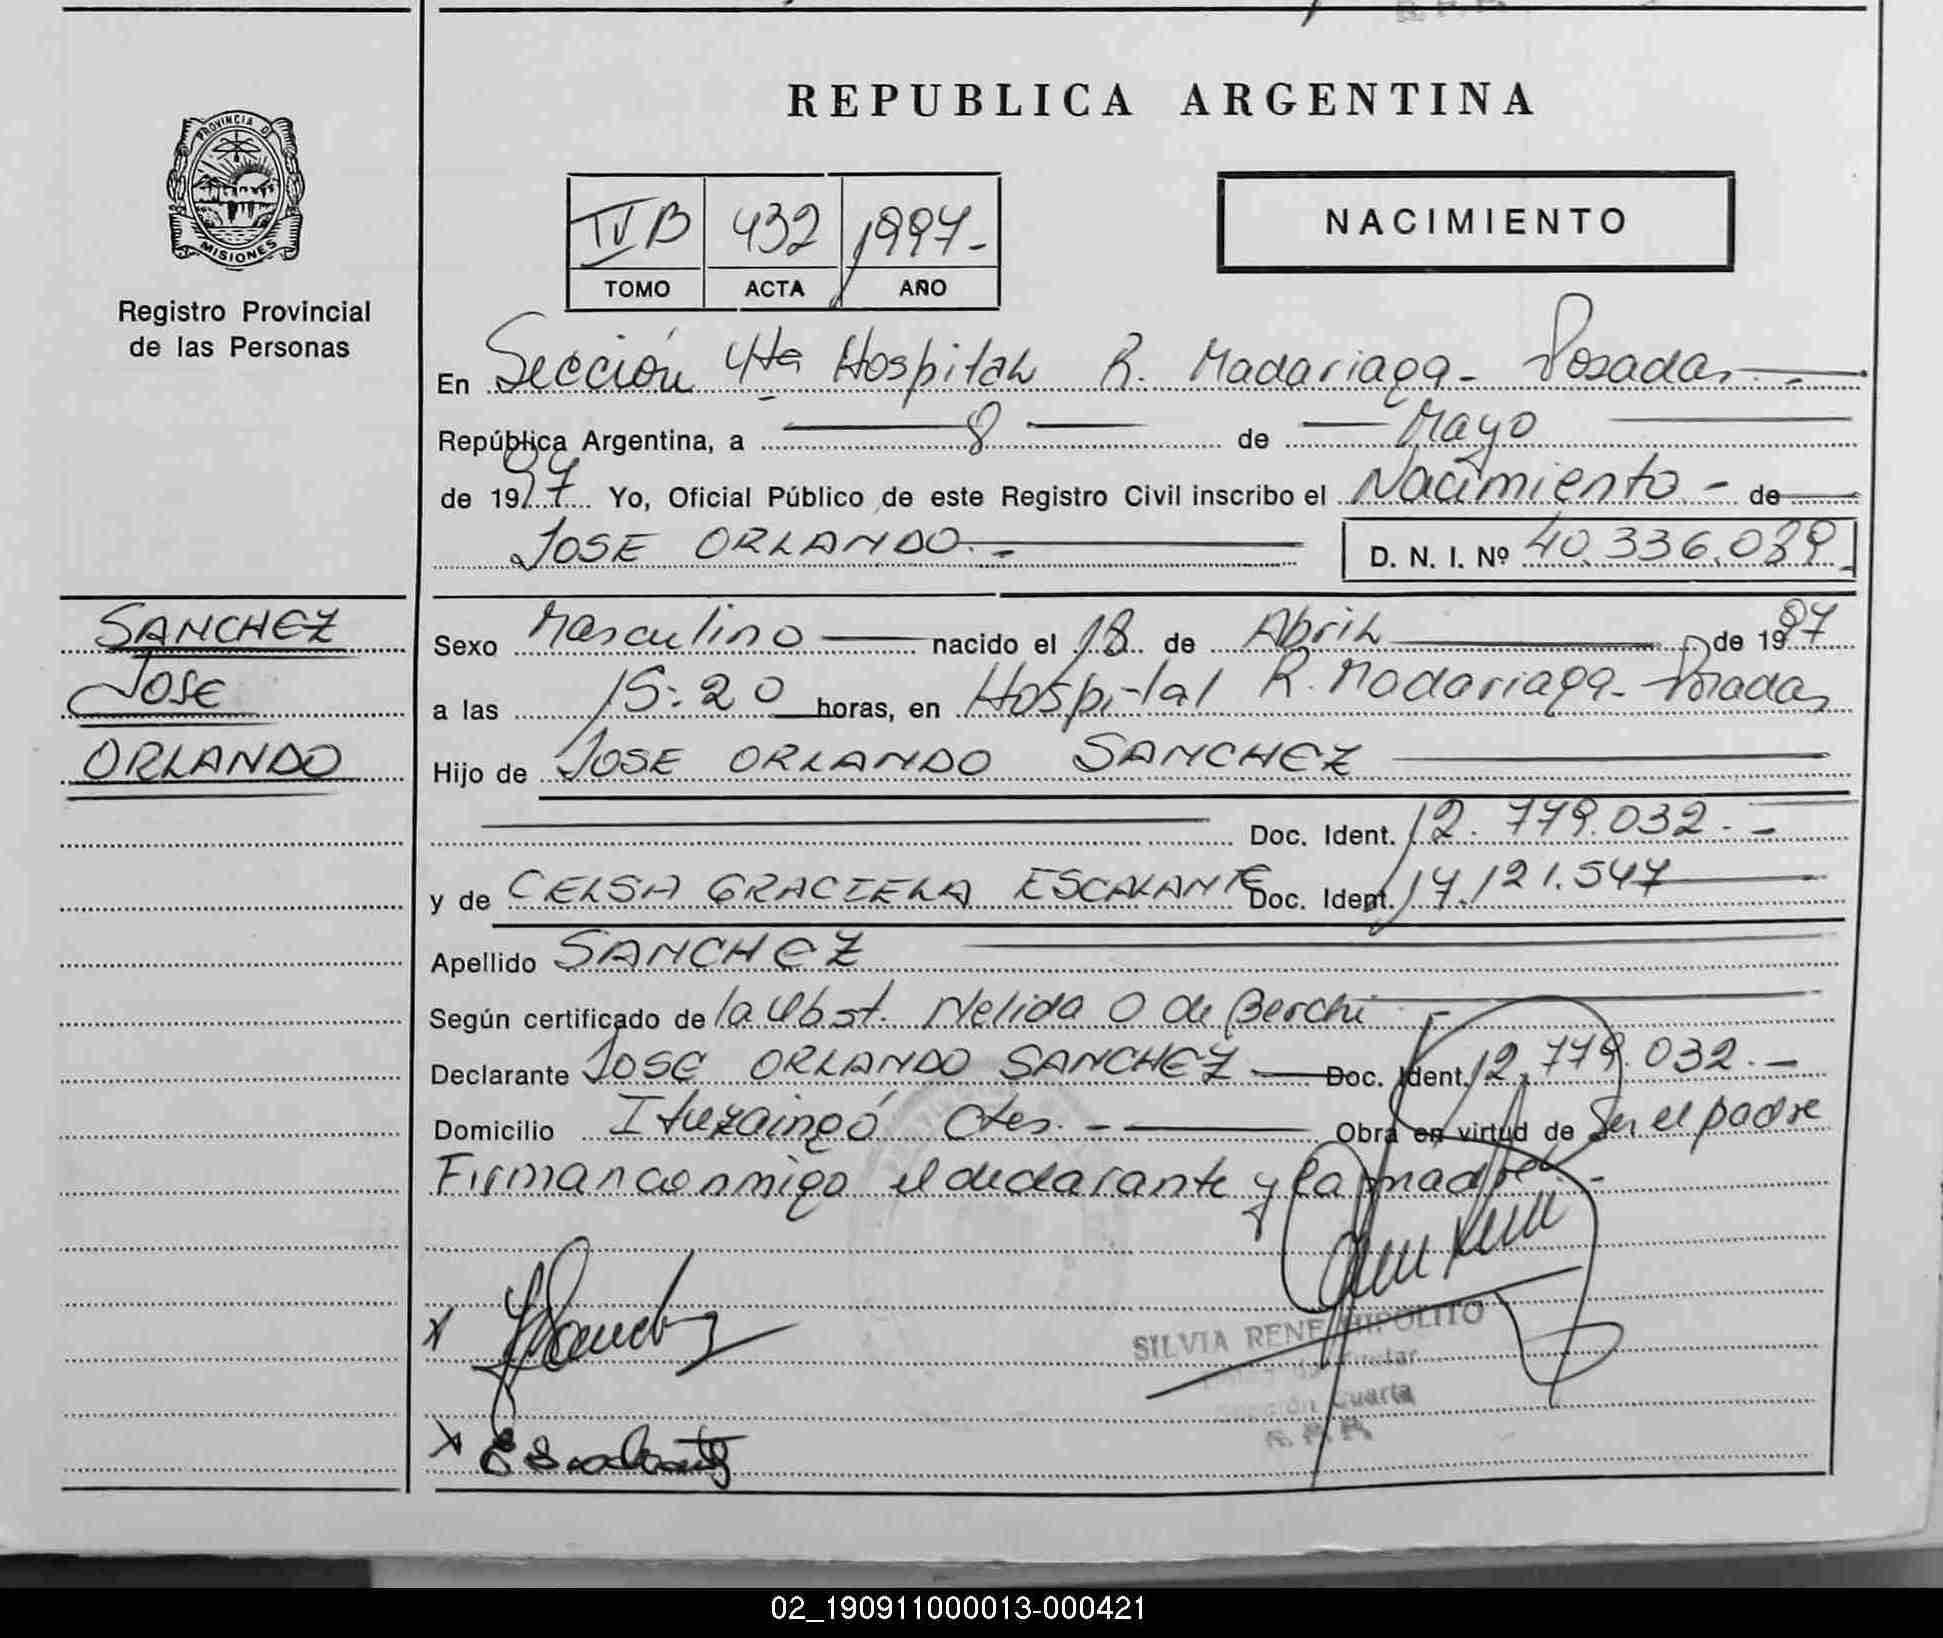 REPUBLICA ARGENTINA
PROVINCIA D
MISIONES
Registro Provincial
de las Personas
IV B 432 1997-
TOMO ACTA AÑO
NACIMIENTO
En Sección 4ta Hospital R. Madariaga - Posadas.-
República Argentina, a 8 de Mayo
de 1997 Yo, Oficial Público de este Registro Civil inscribo el Nacimiento - de
JOSE ORLANDO.- D. N. I. Nº 40.336.039
SANCHEZ
JOSE
ORLANDO
Sexo Masculino nacido el 18 de Abril de 1997
a las 15:20 horas, en Hospital R. Madariaga - Posadas
Hijo de JOSE ORLANDO SANCHEZ
Doc. Ident. 12.779.032.-
y de CELSA GRACIELA ESCALANTE Doc. Ident. 17.121.547
Apellido SANCHEZ
Según certificado de la Obst. Nelida O de Berchi
Declarante JOSE ORLANDO SANCHEZ Doc. Ident. 12.779.032.-
Domicilio Ituzaingó Ctes. - Obra en virtud de Ser el padre
Firman conmigo el declarante y la madre.-
x
SILVIA RENE HIPOLITO
Titular
Sección Cuarta
R. P. P.
x Escalante
02_190911000013-000421